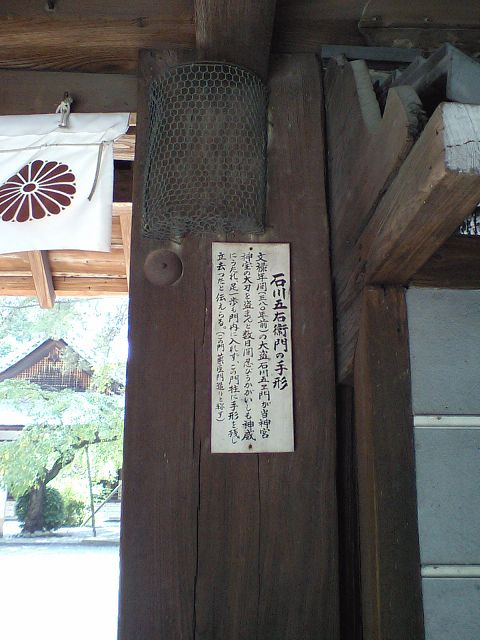 石川五右衛門の手形
文禄年間(三八〇年前)の大盗石川五ヱ門が当神宮
神宝の大刀を盗まんと数日間忍びうかがいしも神威
にうたれ足一歩も門内に入れず、この門柱に手形を残し
立去ったと伝えらる。(この門、薬医門造りと称す)